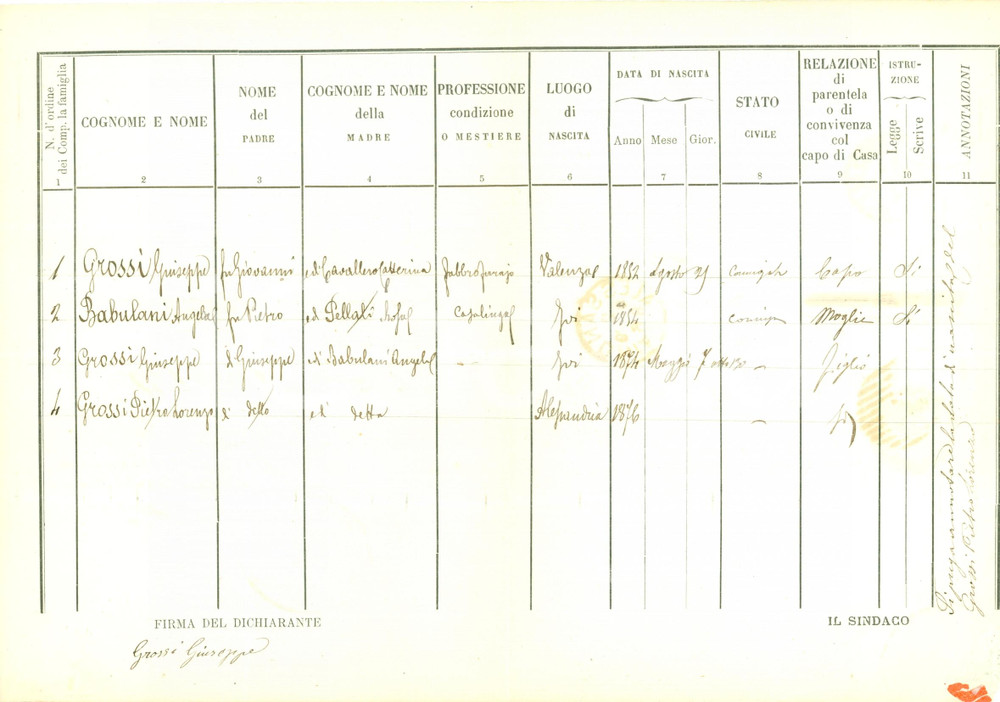 N. d'ordine dei Comp. la famiglia
COGNOME E NOME
NOME del PADRE
COGNOME E NOME della MADRE
PROFESSIONE condizione O MESTIERE
LUOGO di NASCITA
DATA DI NASCITA
Anno Mese Gior.
STATO CIVILE
RELAZIONE di parentela o di convivenza col capo di Casa
ISTRUZIONE
Legge Scrive
ANNOTAZIONI
1 2 3 4 5 6 7 8 9 10 11
1 Grossi Giuseppe fu Giovanni e di Cavallero Catterina fabbro Valenza 1852 Agosto Capo Si
2 Babulani Angela fu Pietro e di Pellati Rosa Casalinga Ivi 1854 Moglie Si
3 Grossi Giuseppe di Giuseppe e di Babulani Angela Ivi 1874 Maggio 7 Figlio
4 Grossi Pietro Lorenzo di detto e di detta Alessandria 1876
Si prega annotare la data di nascita del
Grossi Pietro Lorenzo
FIRMA DEL DICHIARANTE
IL SINDACO
Grossi Giuseppe